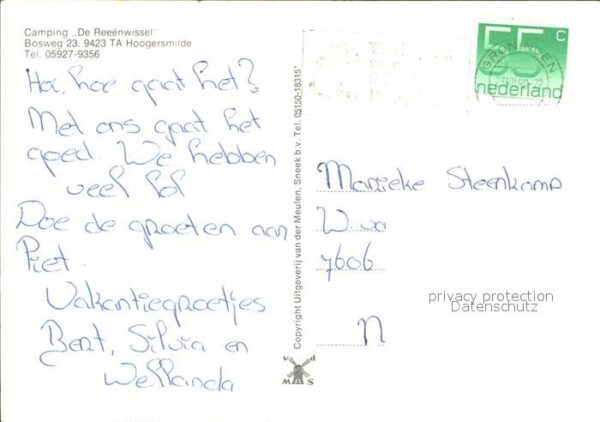 Camping „De Reeënwissel"
Bosweg 23. 9423 TA Hoogersmilde
Tel. 05927-9356
Hoi, hoe gaat het?
Met ons gaat het
goed. We hebben
veel lol
Doe de groeten aan
Piet.
Vakantiegroetjes
Bert, Silvia en
Wellanda
Copyright Uitgeverij van der Meulen, Sneek b.v. Tel. 05150-18315*
v d
M S
GRONINGEN
55 c
nederland
Marieke Steenkamp
7606
N
privacy protection
Datenschutz